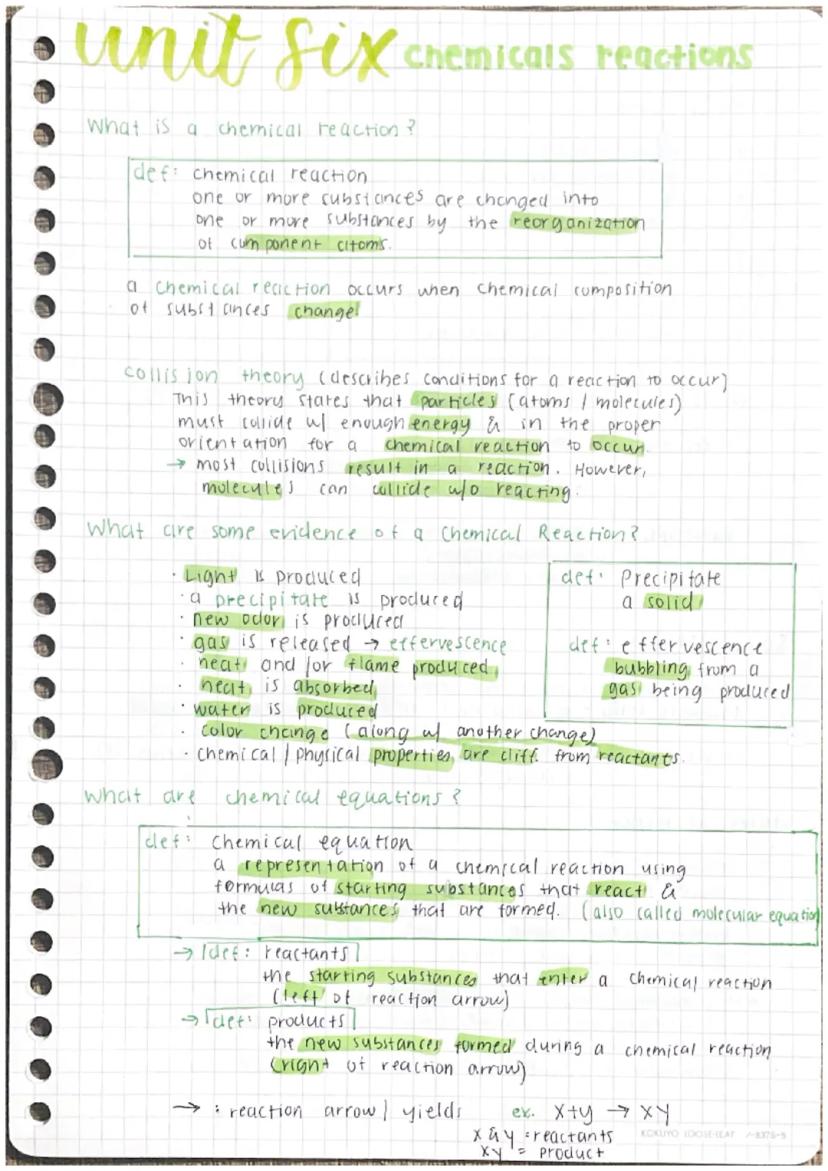 unit six chemicals reactions
What is a chemical reaction?
def: chemical reaction
one or more substances are changed into
one or more substances by the reorganization
of component atoms.
a chemical reaction occurs when chemical composition
of substances change!
collision theory (describes conditions for a reaction to occur)
This theory states that particles (atoms/molecules)
must collide w/ enough energy & in the proper
orientation for a chemical reaction to occur.
→ most collisions result in a reaction. However,
molecules can collide w/o reacting.
What are some evidence of a Chemical Reaction?
· Light is produced
· a precipitate is produced
· new odor is produced
· gas is released → effervescence
· heat and/or flame produced
· heat is absorbed
· water is produced
· color change (along w/ another change)
· chemical/physical properties are diff. from reactants.
def: Precipitate
a solid
def: effervescence
bubbling from a
gas being produced
What are chemical equations?
def: chemical equation
a representation of a chemical reaction using
formulas of starting substances that react &
the new substances that are formed. (also called molecular equation)
→ def: reactants
the starting substances that enter a chemical reaction
(left of reaction arrow)
→ def: products
the new substances formed during a chemical reaction
(right of reaction arrow)
→ : reaction arrow/yields ex. X+y → XY
X & y = reactants
XY = product
KOKUYO LOOSE-LEAF